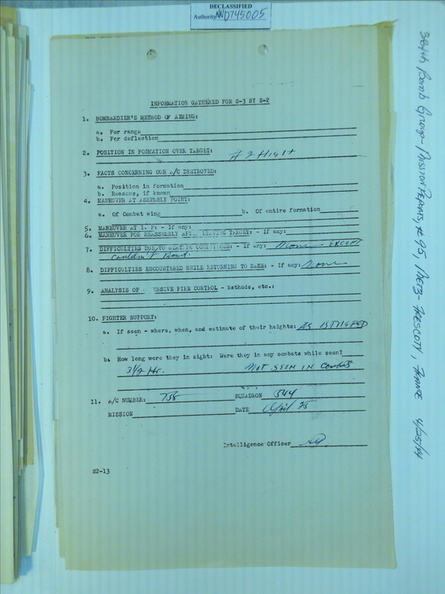 DECLASSIFIED
Authority NND745005
INFORMATION GATHERED FOR S-3 BY S-2
1. BOMBARDIER'S METHOD OF AIMING:
a. For range
b. For deflection
2. POSITION IN FORMATION OVER TARGET: A 2 High
3. FACTS CONCERNING OUR A/C DESTROYED:
a. Position in formation
b. Reasons, if known
4. MANEUVER AT ASSEMBLY POINT:
a. Of Combat wing b. Of entire formation
5. MANEUVER AT I. P: - if any:
6. MANEUVER FOR REASSEMBLY AFTER LEAVING TARGET: - if any:
7. DIFFICULTIES DUE TO WEATHER CONDITIONS: - if any: None - except
couldn't Bomb.
8. DIFFICULTIES ENCOUNTERED WHILE RETURNING TO BASE: - if any: None
9. ANALYSIS OF FIRE CONTROL - Methods, etc.:
10. FIGHTER SUPPORT:
a. If seen - where, when, and estimate of their heights: AS BRIEFED
b. How long were they in sight: Were they in any combats while seen?
3 1/2 Hr. NOT SEEN IN Combats
11. A/C NUMBER: SQUADRON 544
MISSION DATE April 25
Intelligence Officer
S2-13
384th Bomb Group - Mission Reports, # 95, METZ - FRESCOTY, France 4/25/44